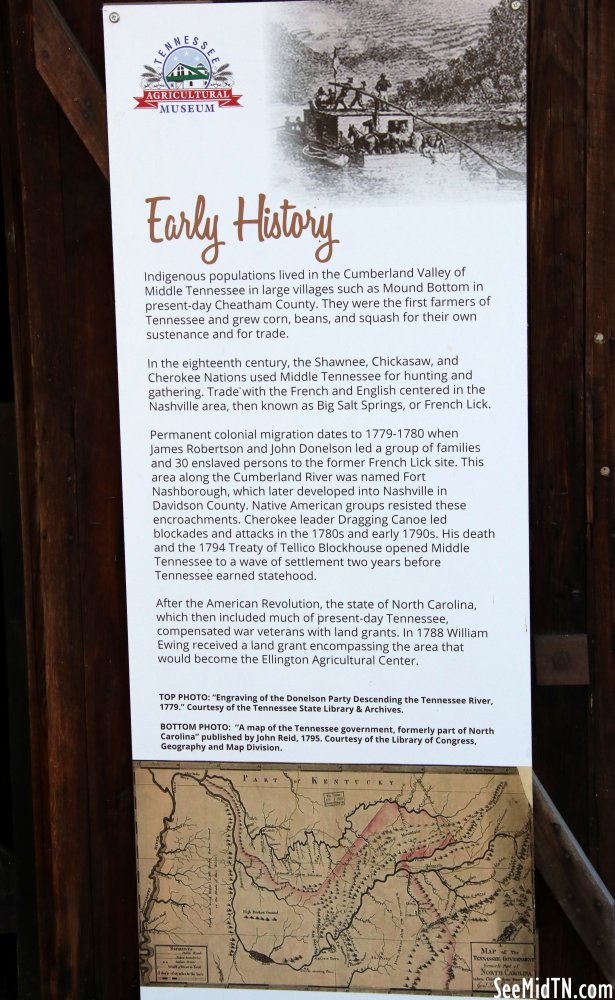 TENNESSEE
AGRICULTURAL
MUSEUM
Early History
Indigenous populations lived in the Cumberland Valley of
Middle Tennessee in large villages such as Mound Bottom in
present-day Cheatham County. They were the first farmers of
Tennessee and grew corn, beans, and squash for their own
sustenance and for trade.
In the eighteenth century, the Shawnee, Chickasaw, and
Cherokee Nations used Middle Tennessee for hunting and
gathering. Trade with the French and English centered in the
Nashville area, then known as Big Salt Springs, or French Lick.
Permanent colonial migration dates to 1779-1780 when
James Robertson and John Donelson led a group of families
and 30 enslaved persons to the former French Lick site. This
area along the Cumberland River was named Fort
Nashborough, which later developed into Nashville in
Davidson County. Native American groups resisted these
encroachments. Cherokee leader Dragging Canoe led
blockades and attacks in the 1780s and early 1790s. His death
and the 1794 Treaty of Tellico Blockhouse opened Middle
Tennessee to a wave of settlement two years before
Tennessee earned statehood.
After the American Revolution, the state of North Carolina,
which then included much of present-day Tennessee,
compensated war veterans with land grants. In 1788 William
Ewing received a land grant encompassing the area that
would become the Ellington Agricultural Center.
TOP PHOTO: "Engraving of the Donelson Party Descending the Tennessee River,
1779." Courtesy of the Tennessee State Library & Archives.
BOTTOM PHOTO: "A map of the Tennessee government, formerly part of North
Carolina" published by John Reid, 1795. Courtesy of the Library of Congress,
Geography and Map Division.
PART OF KENTUCKY
MAP of The
TENNASSEE GOVERNMENT
formerly Part of
NORTH CAROLINA
SeeMidTN.com